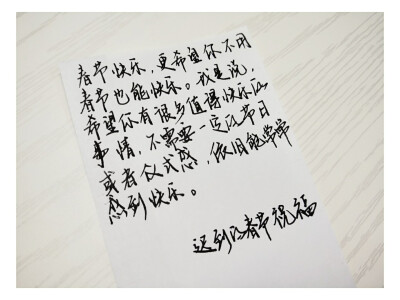 春节快乐，更希望你不用
春节也能快乐。我是说，
希望你有很多值得快乐的
事情，不需要一定的节日
或者仪式感，依旧能常常
感到快乐。
迟到的春节祝福